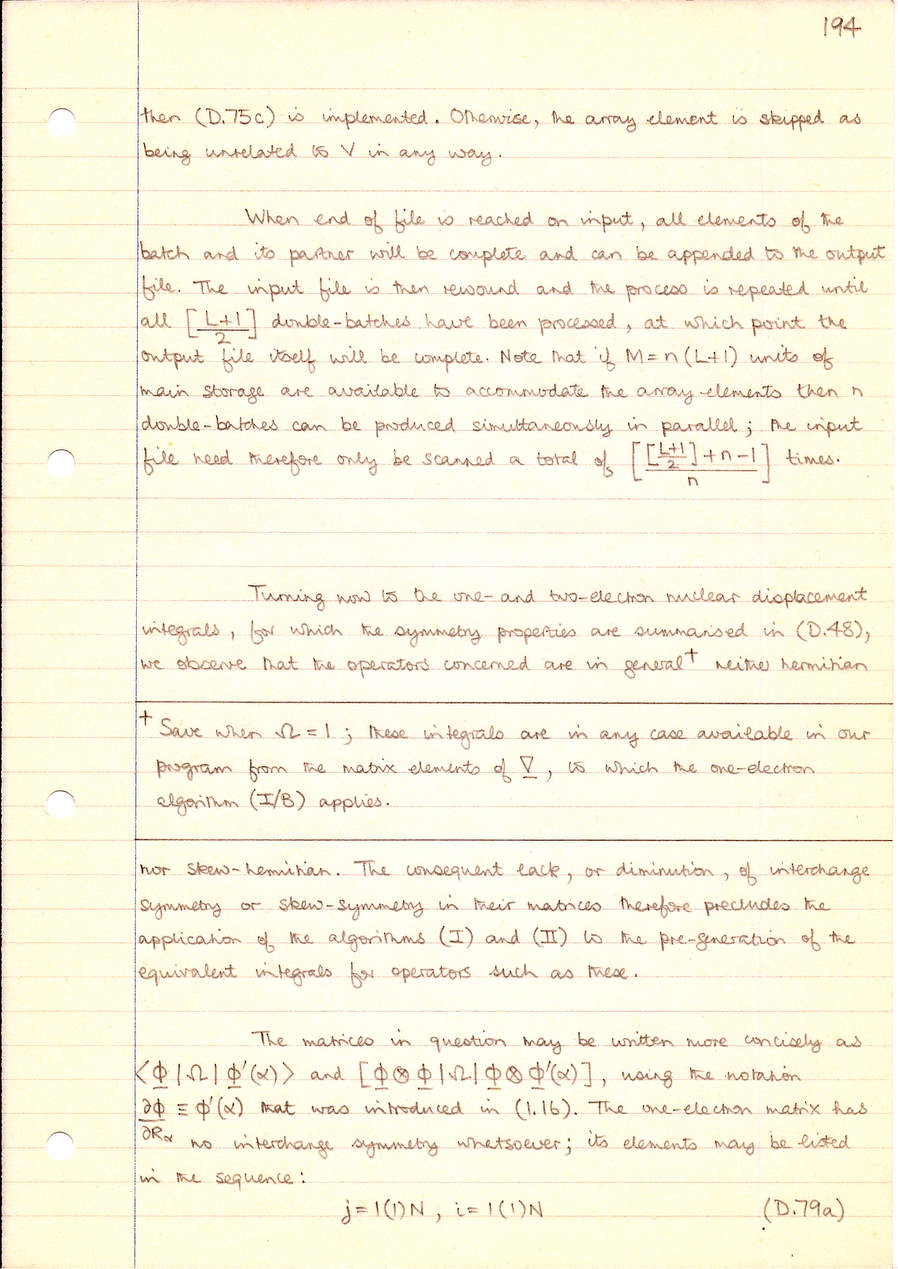 194
then (D.75c) is implemented. Otherwise, the array element is skipped as
being unrelated to V in any way.
When end of file is reached on input, all elements of the
batch and its partner will be complete and can be appended to the output
file. The input file is then rewound and the process is repeated until
all [(L+1)/2] double-batches have been processed, at which point the
output file itself will be complete. Note that if M = n(L+1) units of
main storage are available to accommodate the array elements then n
double-batches can be produced simultaneously in parallel; the input
file need therefore only be scanned a total of [([(L+1)/2] + n - 1)/n] times.
Turning now to the one- and two-electron nuclear displacement
integrals, for which the symmetry properties are summarised in (D.48),
we observe that the operators concerned are in general† neither hermitian
† Save when Ω = 1; these integrals are in any case available in our
program from the matrix elements of ∇, to which the one-electron
algorithm (I/B) applies.
nor skew-hermitian. The consequent lack, or diminution, of interchange
symmetry or skew-symmetry in their matrices therefore precludes the
application of the algorithms (I) and (II) to the pre-generation of the
equivalent integrals for operators such as these.
The matrices in question may be written more concisely as
⟨ϕ|Ω|ϕ'(α)⟩ and [ϕ⊗ϕ|Ω|ϕ⊗ϕ'(α)], using the notation
∂ϕ/∂Rα ≡ ϕ'(α) that was introduced in (1.16). The one-electron matrix has
no interchange symmetry whatsoever; its elements may be listed
in the sequence:
j = 1(1)N, i = 1(1)N (D.79a)